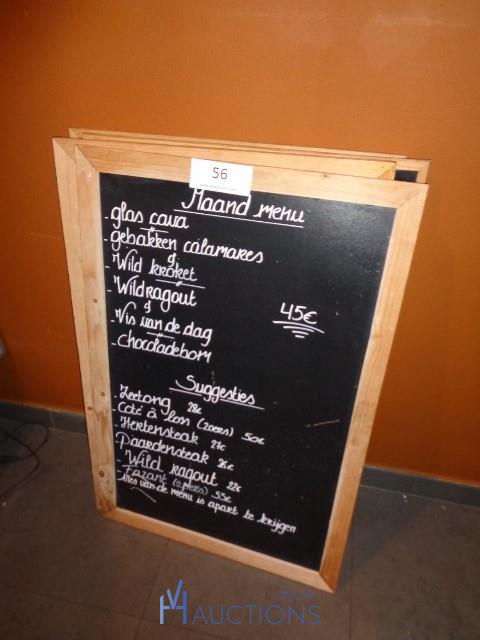 56
Maand menu
- glas cava
- gebakken calamares
of
- Wild kroket
- Wildragout
of
- Vis van de dag
- chocoladebom
45€
Suggesties
- Zeetong 28€
- Coté à l'os (2pers) 50€
- Hertensteak 27€
- Paardensteak 26€
- Wild ragout 22€
- Fazant (2pers) 55€
- Alles van de menu is apart te krijgen
AUCTIONS